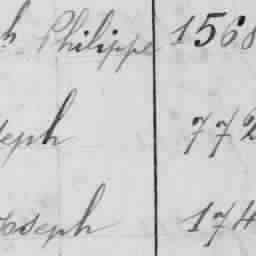 h Philippe 1568
seph 772
Joseph 174